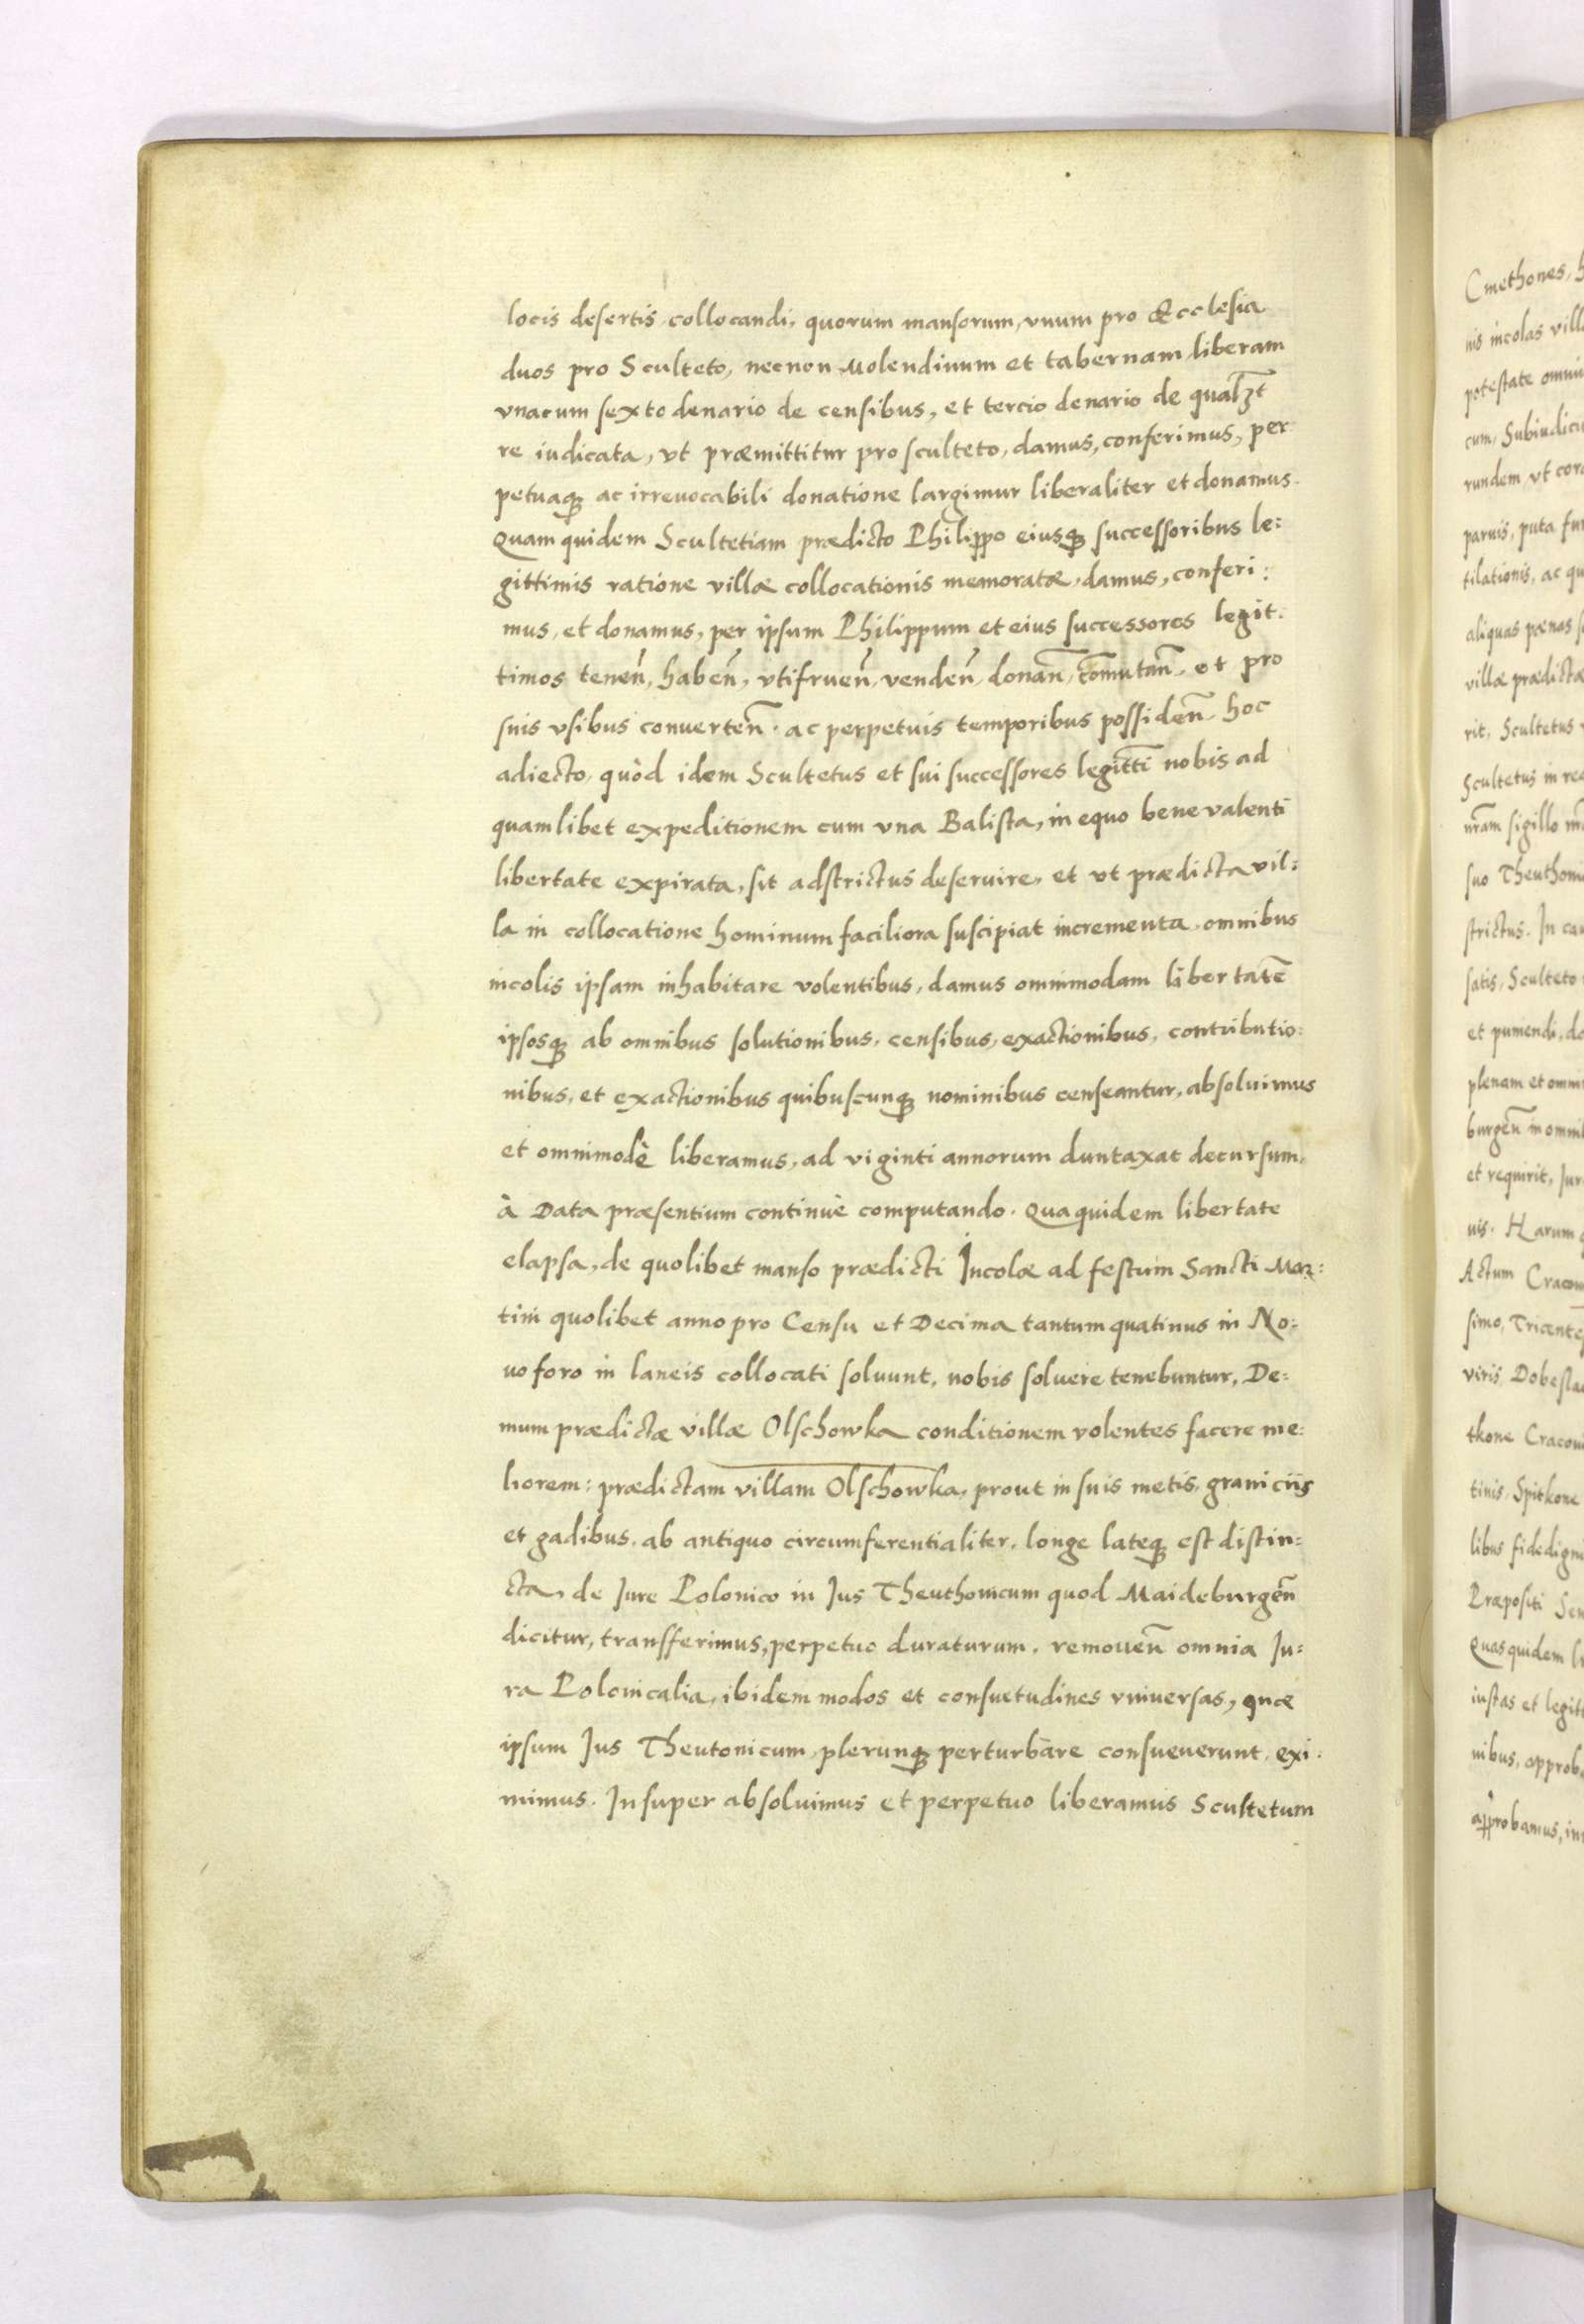 locis desertis collocandi, quorum mansorum, vnum pro Ecclesia
duos pro Sculteto, necnon Molendinum et tabernam liberam
vnacum sexto denario de censibus, et tercio denario de
re iudicata, vt præmittitur pro sculteto, damus, conferimus, per
petuaq3 ac irreuocabili donatione largimur liberaliter et donamus.
Quam quidem Scultetiam prædicto Philippo eiusq3 successoribus le:
gittimis ratione villæ collocationis memoratæ, damus, conferi:
mus, et donamus, per ipsum Philippum et eius successores legit:
timos teneñ, habeñ, vtifrueñ, vendeñ, donañ, com̄utañ, et pro
suis vsibus conuerteñ. ac perpetuis temporibus possideñ. hoc
adiecto, quòd idem Scultetus et sui successores legittī nobis ad
quamlibet expeditionem cum vna Balista, in equo bene valenti
libertate expirata, sit adstrictus deseruire, et vt prædicta vil:
la in collocatione hominum faciliora suscipiat incrementa, omnibus
incolis ipsam inhabitare volentibus, damus omnimodam libertatē
ipsosq3 ab omnibus solutionibus, censibus, exactionibus, contributio:
nibus, et exactionibus quibuscunq3 nominibus censeantur, absoluimus
et omnimodè liberamus, ad viginti annorum duntaxat decursum,
à Data præsentium continuè computando. Qua quidem libertate
elapsa, de quolibet manso prædicti Incolæ ad festum Sancti Mar:
tini quolibet anno pro Censu et Decima tantum quatinus in No:
uo foro in laneis collocati soluunt, nobis soluere tenebuntur, De:
mum prædictæ villæ Olschowka conditionem volentes facere me:
liorem: prædictam villam Olschowka, prout in suis metis, graniciis
et gadibus, ab antiquo circumferentialiter, longe lateq3 est distin:
cta, de Iure Polonico in Ius Theuthonicum quod Maideburgeñ
dicitur, transferimus, perpetuo duraturum, remoueñ omnia Iu:
ra Polonicalia, ibidem modos et consuetudines vniuersas, quæ
ipsum Ius Theutonicum, plerunq3 perturbare consueuerunt, exi:
mimus. Insuper absoluimus et perpetuo liberamus Scultetum
Cmethones,
nis incolas
potestate
cum,
rundem vt
paruis, puta
tilationis, ac
aliquas pœnas
villæ prædictæ
rit, Scultetus
Scultetus in
nr̃am sigillo
suo
strictus. In
satis, Sculteto
et puniendi,
plenam et
burgeñ in
et requirit,
uis. Harum
Actum
simo,
viris
tkone
tinis, Spitkone
libus
Præpositi
Quas quidem
iustas et
nibus,
approbamus,